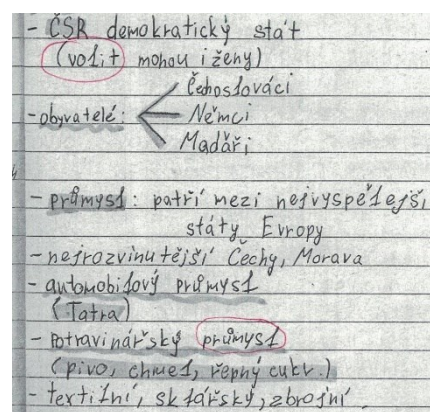 - ČSR demokratický stát
(volit mohou i ženy)
- obyvatelé: Čechoslováci
Němci
Maďaři
- průmysl: patří mezi nejvyspělejší,
státy Evropy
- nejrozvinutější Čechy, Morava
- automobilový průmysl
(Tatra)
- Potravinářský průmysl
(pivo, chmel, řepný cukr.)
- textilní, sklářský, zbrojní